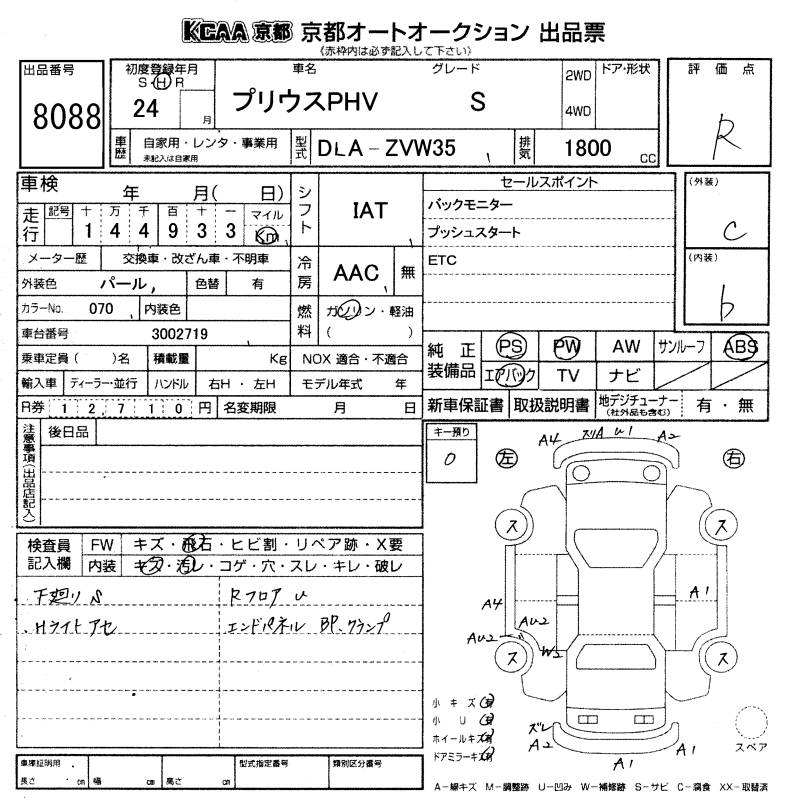 KCAA 京都 京都オートオークション 出品票
(赤枠内は必ず記入して下さい)
出品番号
8088
初度登録年月
S・H R
24
月
車名
グレード
プリウスPHV S
2WD
4WD
ドア・形状
車歴
自家用・レンタ・事業用
未記入は自家用
型式
DLA-ZVW35
排気
1800 CC
評価点
R
車検 年 月( 日)
走行
記号 十 万 千 百 十 一
1 4 4 9 3 3
マイル
Km
メーター歴 交換車・改ざん車・不明車
外装色 パール 色替 有
カラーNo. 070 内装色
車台番号 3002719
乗車定員( )名 積載量 Kg
輸入車 ディーラー・並行 ハンドル 右H・左H
R券 1 2,7 1 0 円 名変期限 月 日
シフト IAT
冷房 AAC 無
燃料 ガソリン・軽油
( )
NOX 適合・不適合
モデル年式 年
セールスポイント
バックモニター
プッシュスタート
ETC
(外装)
C
(内装)
b
純正装備品
PS PW AW サンルーフ ABS
エアバック TV ナビ
新車保証書 取扱説明書 地デジチューナー
(社外品も含む)
有・無
注意事項(出品店記入)
後日品
キー預り
0
左
右
A4 スリA U1 A2
ス
ス
A4
A1
AU2
AU2
W2
ス
ス
ズレ
A2
A1
A1
スペア
小キズ 有
小U 有
ホイールキズ 有
ドアミラーキズ 有
検査員記入欄
FW キズ・飛石・ヒビ割・リペア跡・X要
内装 キズ・汚レ・コゲ・穴・スレ・キレ・破レ
下廻り S
Hライト アセ
Rフロア U
エンドパネル BP、クランプ
車庫証明用
長さ cm 幅 cm 高さ cm
型式指定番号
類別区分番号
A-線キズ M-調整跡 U-凹み W-補修跡 S-サビ C-腐食 XX-取替済